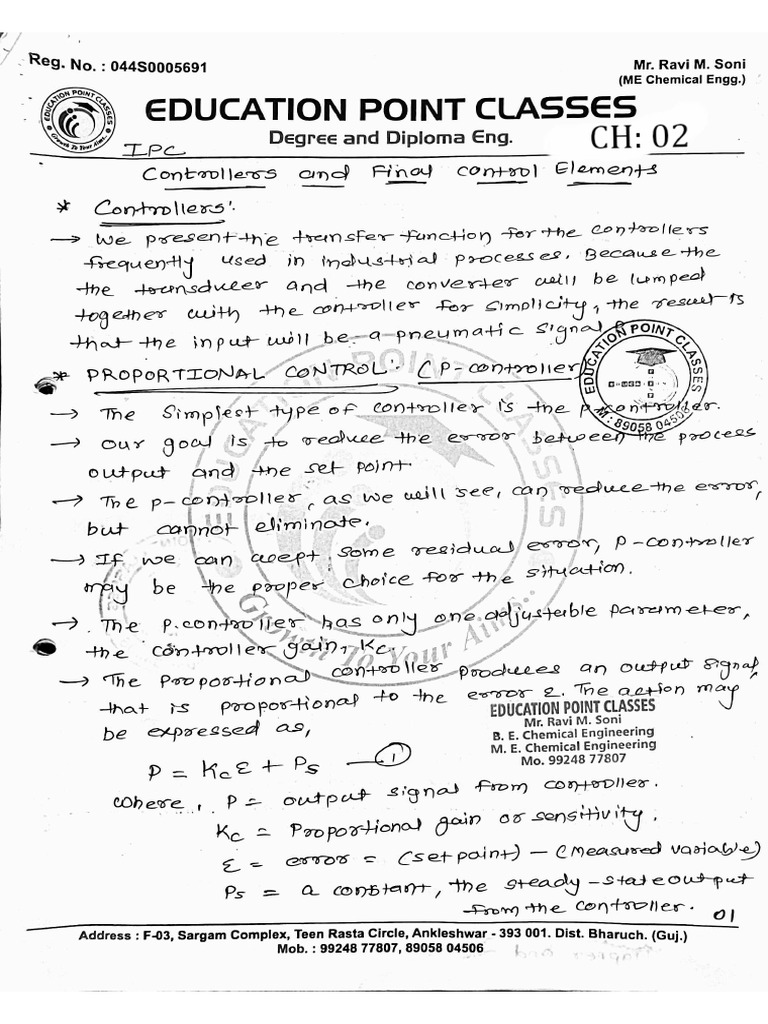 Reg. No. : 044S0005691
Mr. Ravi M. Soni
(ME Chemical Engg.)
EDUCATION POINT CLASSES
Growth To Your Aim...
EDUCATION POINT CLASSES
Degree and Diploma Eng.
CH: 02
IPC
Controllers and Final control Elements
* Controllers:
→ We present the transfer function for the controllers
frequently used in industrial processes. Because the
the transducer and the converter will be lumped
together with the controller for simplicity, the result is
that the input will be a pneumatic signal
* PROPORTIONAL CONTROL: (P-controller)
EDUCATION POINT CLASSES
M: 89058 04506
→ The simplest type of controller is the p-controller.
→ Our goal is to reduce the error between the process
output and the set point
→ The p-controller, as we will see, can reduce the error,
but cannot eliminate.
→ If we can accept some residual error, P-controller
may be the proper choice for the situation.
→ The p.controller has only one adjustable parameter,
the controller gain, Kc.
→ The proportional controller produces an output signal,
that is proportional to the error ε. The action may
be expressed as,
EDUCATION POINT CLASSES
Growth To Your Aim...
EDUCATION POINT CLASSES
Mr. Ravi M. Soni
B. E. Chemical Engineering
M. E. Chemical Engineering
Mo. 99248 77807
P = Kc ε + Ps — 1
where, P = output signal from controller.
Kc = Proportional gain or sensitivity.
ε = error = (set point) - (Measured variable)
Ps = a constant, the steady-state output
from the controller.
01
Address : F-03, Sargam Complex, Teen Rasta Circle, Ankleshwar - 393 001. Dist. Bharuch. (Guj.)
Mob. : 99248 77807, 89058 04506